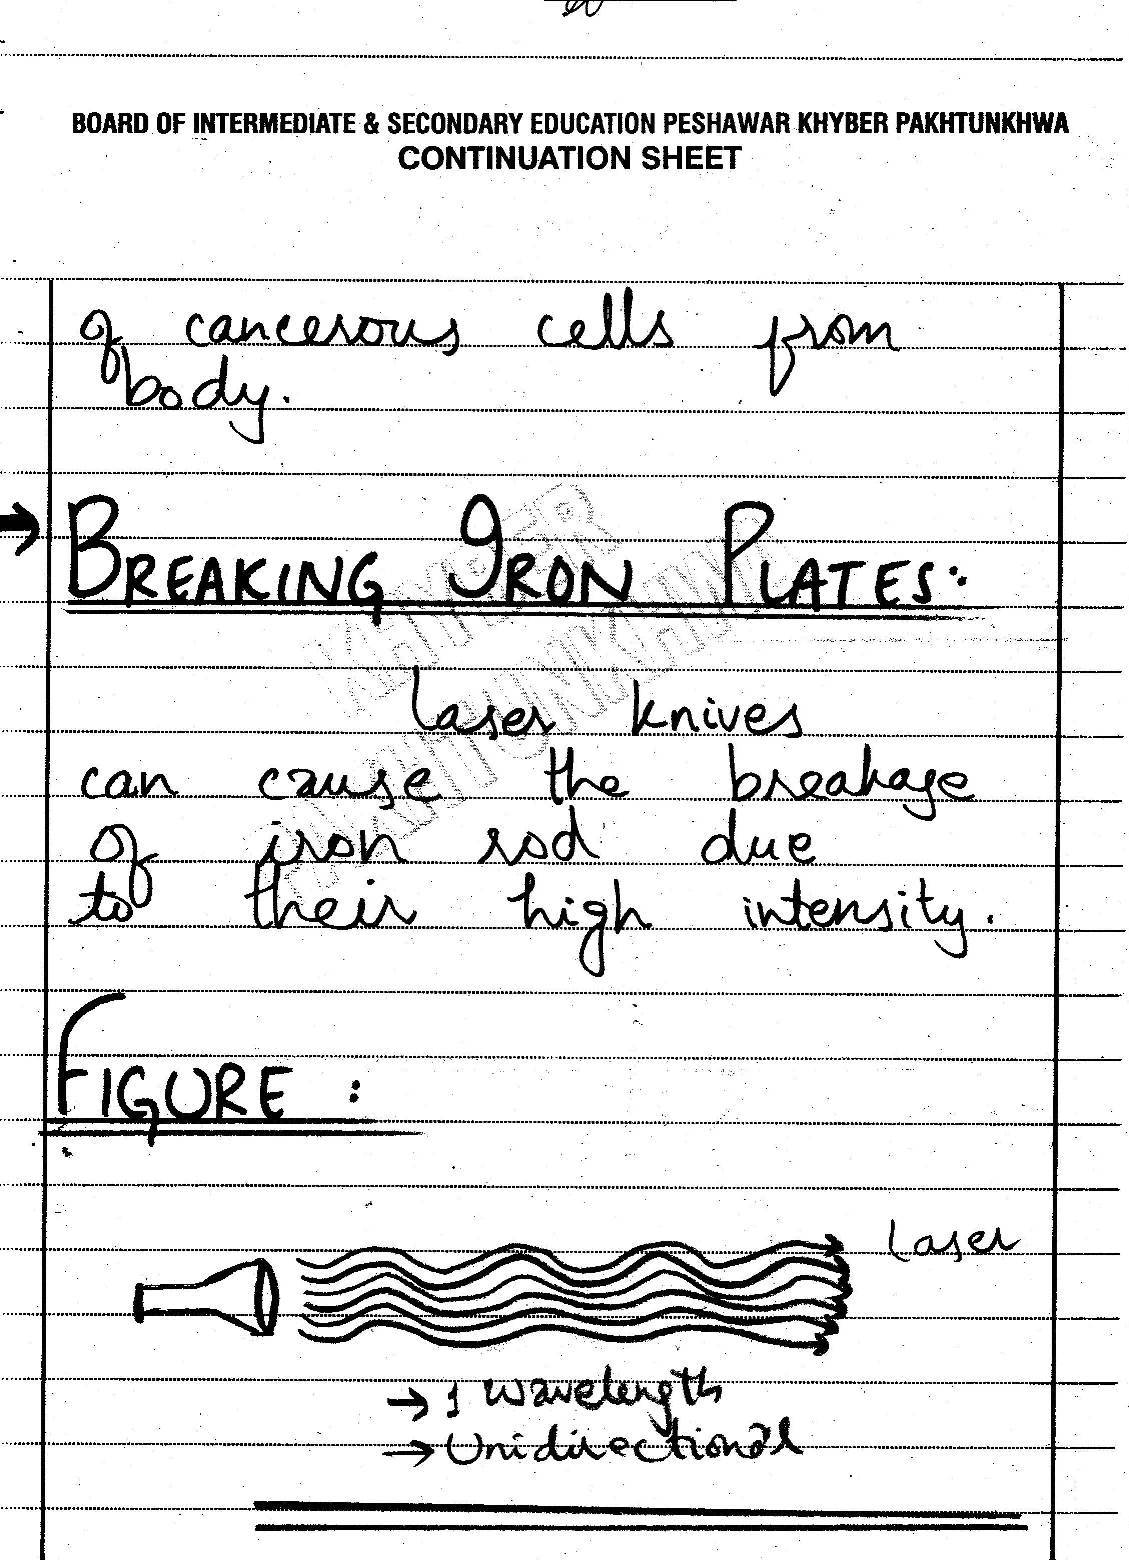 BOARD OF INTERMEDIATE & SECONDARY EDUCATION PESHAWAR KHYBER PAKHTUNKHWA
CONTINUATION SHEET
of cancerous cells from
body.
→ BREAKING IRON PLATES:
KHYBER
PAKHTUNKHWA
Laser knives
can cause the breakage
of iron rod due
to their high intensity.
FIGURE :
Laser
→ 1 wavelength
→ Unidirectional